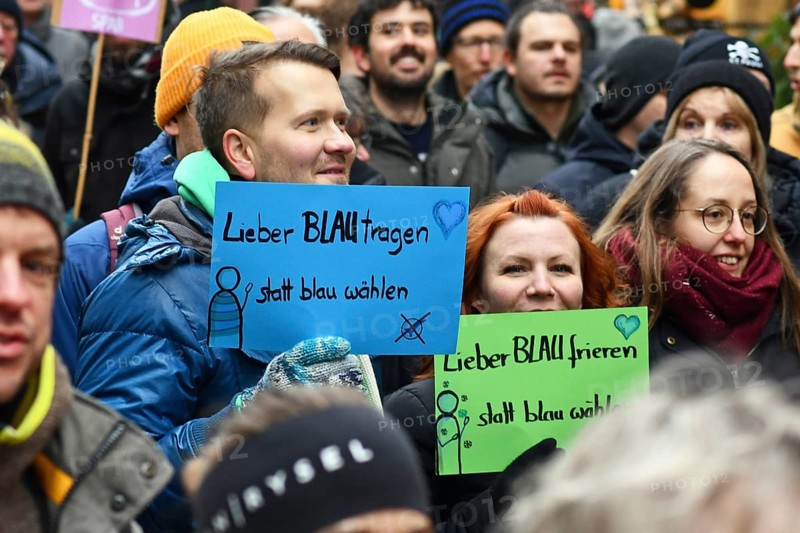 SPAR
Lieber BLAU tragen
statt blau wählen
Lieber BLAU frieren
statt blau wählen
RYSEL
PHOTO12